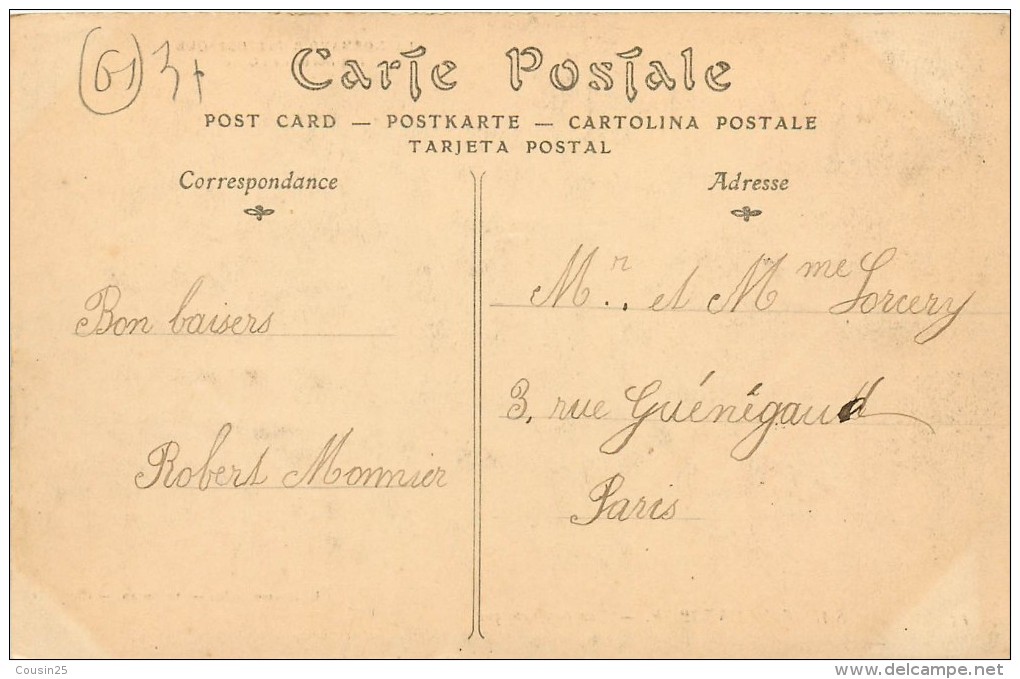 61
Carte Postale
POST CARD — POSTKARTE — CARTOLINA POSTALE
TARJETA POSTAL
Correspondance
Adresse
Bon baisers
Robert Monnier
Mr. et Mme Sorcery
3, rue Guénégaud
Paris
Cousin25
www.delcampe.net